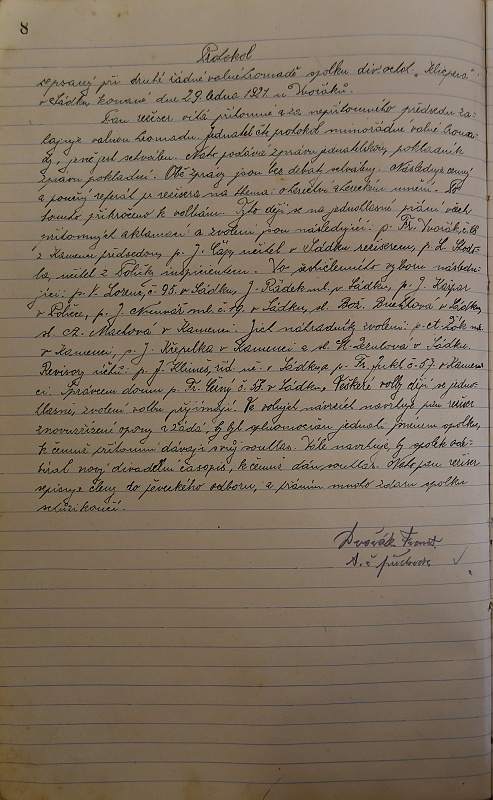 8
Protokol
sepsaný při druhé řádné valné hromadě spolku div. ochot. „Klicpera"
v Sádku, konané dne 29. ledna 1921 u Dvořáků.
Pan režiser vítá přítomné a za nepřítomného předsedu za-
hajuje valnou hromadu. Jednatel čte protokol mimořádné valné hroma-
dy, jenž jest schválen. Nato podává zprávu jednatelskou, pokladník
zprávu pokladní. Obě zprávy jsou bez debaty schváleny. Následuje cenný
a poučný referát p. režisera na thema: o hereckém umění. Po
tomto přikročeno k volbám. Tyto dějí se na jednohlasné přání všech
přítomných aklamací a zvoleni jsou následující: p. Fr. Dvořák č. 68
z Kamenci předsedou, p. J. Čápy učitel v Sádku režiserem, p. L.
učitel z Poličky inspicientem. Do šestičlenného výboru následu-
jící: p. V. Lorenc č. 95. v Sádku, J. Rádek ml. v Sádku, p. J. Kašpar
v Poličce, p. J. ml. č. 19. v Sádku, sl. Bož. Bucht­ová v Sádku,
sl. A. Maclová v Kamenci. Jich náhradníky zvoleni: p. A. Žák ml.
v Kamenci, p. J. Křepelka v Kamenci a sl. M. v Sádku.
Revisory účtů: p. J. Klimeš, říd. uč. v Sádku a p. Fr. Jukl č. 57. v Kamen-
ci. Správcem domu p. Fr. Černý č. v Sádku. Veškeré volby dějí se jedno-
hlasně, zvolení volbu přijímají. Ve volných návrzích navrhuje pan režiser
znovuzřízení opony a žádá, by byl splnomocněn jednati jménem spolku,
k čemuž přítomní dávají svůj souhlas. Dále navrhuje, by spolek od-
bíral nový divadelní časopis, k čemuž dán souhlas. Nato pan režiser
vpisuje členy do pěveckého odboru, a přáním mnoho zdaru spolku
schůzi končí.
Dvořák Frant.
t. č. předseda